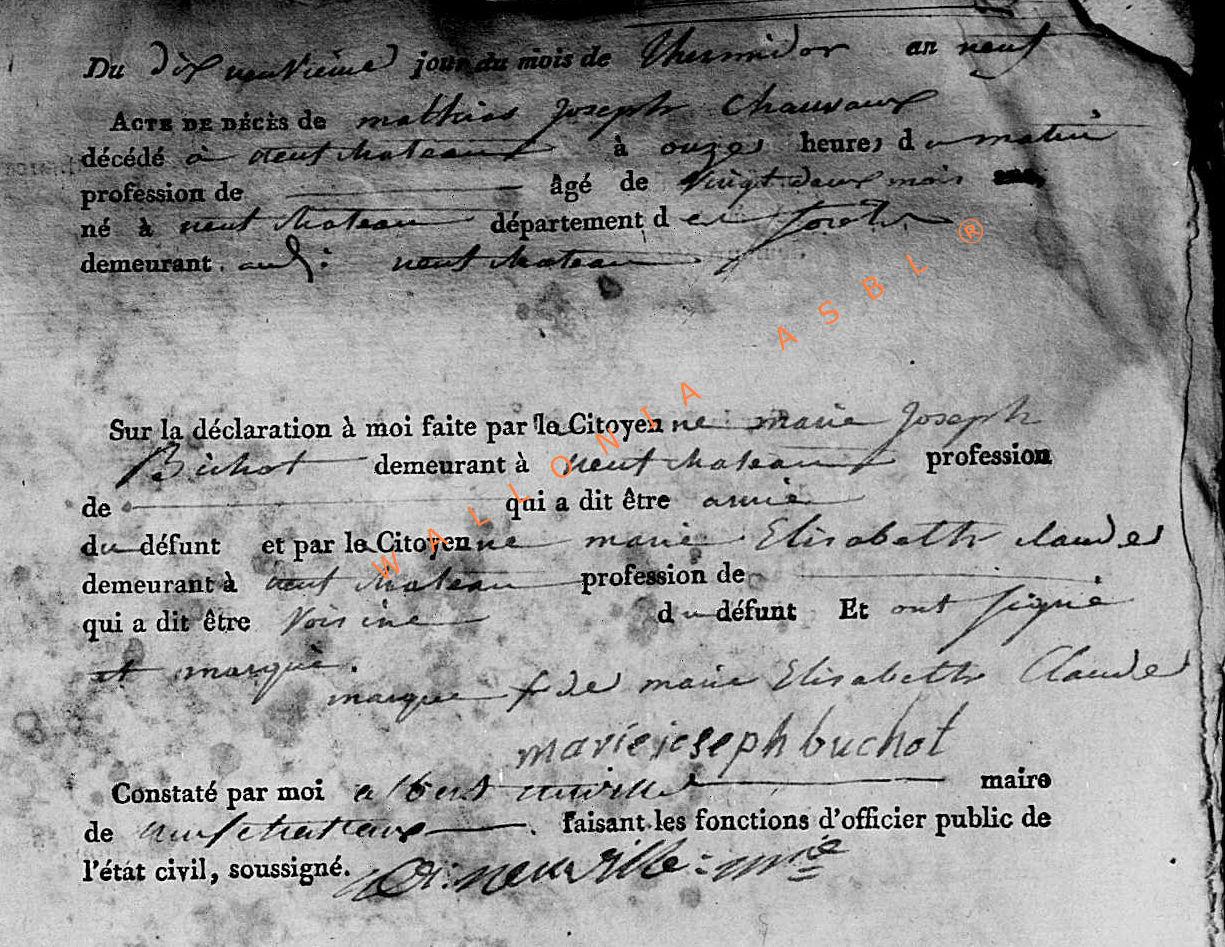 Du dix neuvieme jour du mois de thermidor an neuf
ACTE DE DÉCÈS de mathias Joseph Chauvaux
décédé à neufchateau à onze heures du matin
profession de âgé de vingt deux mois
né à neufchateau département des forets
demeurant aud: neufchateau
Sur la déclaration à moi faite par la Citoyenne marie Joseph
Buchot demeurant à neufchateau profession
de qui a dit être amie
du défunt et par la Citoyenne marie Elisabeth claude
demeurant à neufchateau profession de
qui a dit être Voisine du défunt Et ont signé
et marqué.
marque de marie Elisabeth Claude
marie joseph buchot
Constaté par moi neuville maire
de neufchateau faisant les fonctions d'officier public de
l'état civil, soussigné. neuville: mre
WALLONIA ASBL ®